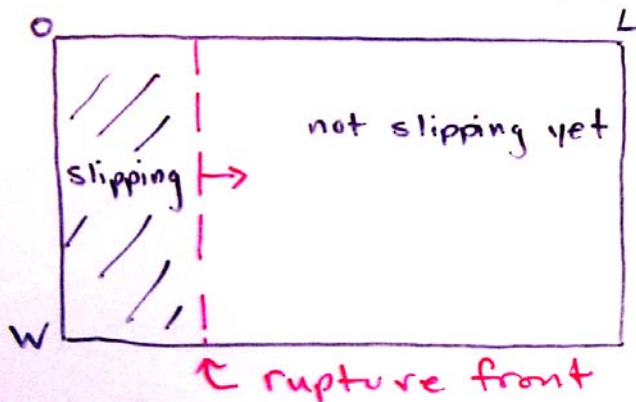 O L
not slipping yet
slipping
W
rupture front